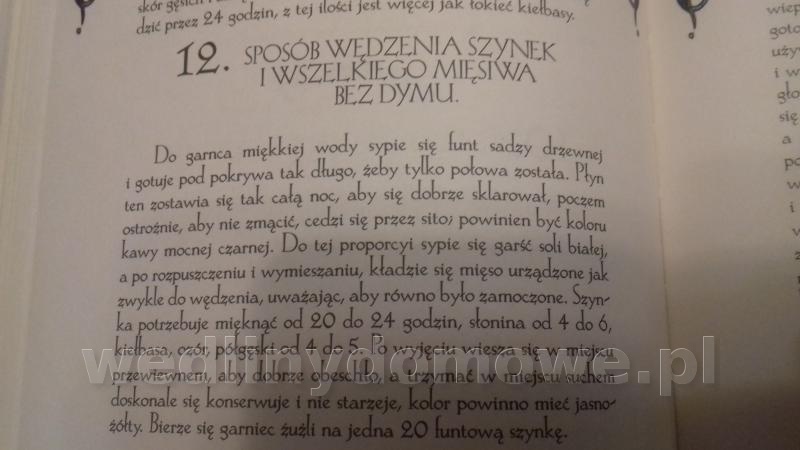 skór gęsich i
dzić przez 24 godzin, z tej ilości jest więcej jak łokieć kiełbasy.
12. SPOSÓB WĘDZENIA SZYNEK
I WSZELKIEGO MIĘSIWA
BEZ DYMU.
Do garnca miękkiej wody sypie się funt sadzy drzewnej
i gotuje pod pokrywą tak długo, żeby tylko połowa została. Płyn
ten zostawia się tak całą noc, aby się dobrze sklarował, poczem
ostrożnie, aby nie zmącić, cedzi się przez sito; powinien być koloru
kawy mocnej czarnej. Do tej proporcyi sypie się garść soli białej,
a po rozpuszczeniu i wymieszaniu, kładzie się mięso urządzone jak
zwykle do wędzenia, uważając, aby równo było zamoczone. Szyn-
ka potrzebuje mięknąć od 20 do 24 godzin, słonina od 4 do 6,
kiełbasa, ozór, półgęski od 4 do 5. Po wyjęciu wiesza się w miejscu
przewiewnem, aby dobrze obeschło, a trzymać w miejscu suchem
doskonale się konserwuje i nie starzeje, kolor powinno mieć jasno-
żółty. Bierze się garniec żużli na jedna 20 funtową szynkę.
wedlinydomowe.pl
wiep
goto
uży
i w
gło
się
a
po
w
i